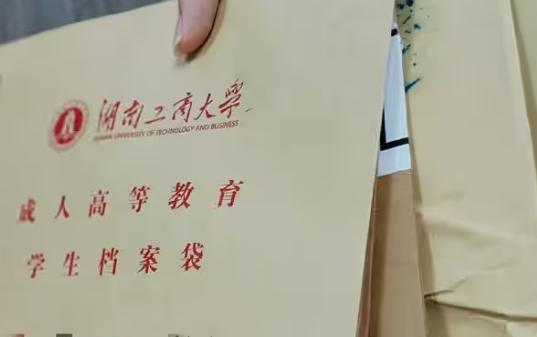 湖南工商大学
HUNAN UNIVERSITY OF TECHNOLOGY AND BUSINESS
成人高等教育
学生档案袋